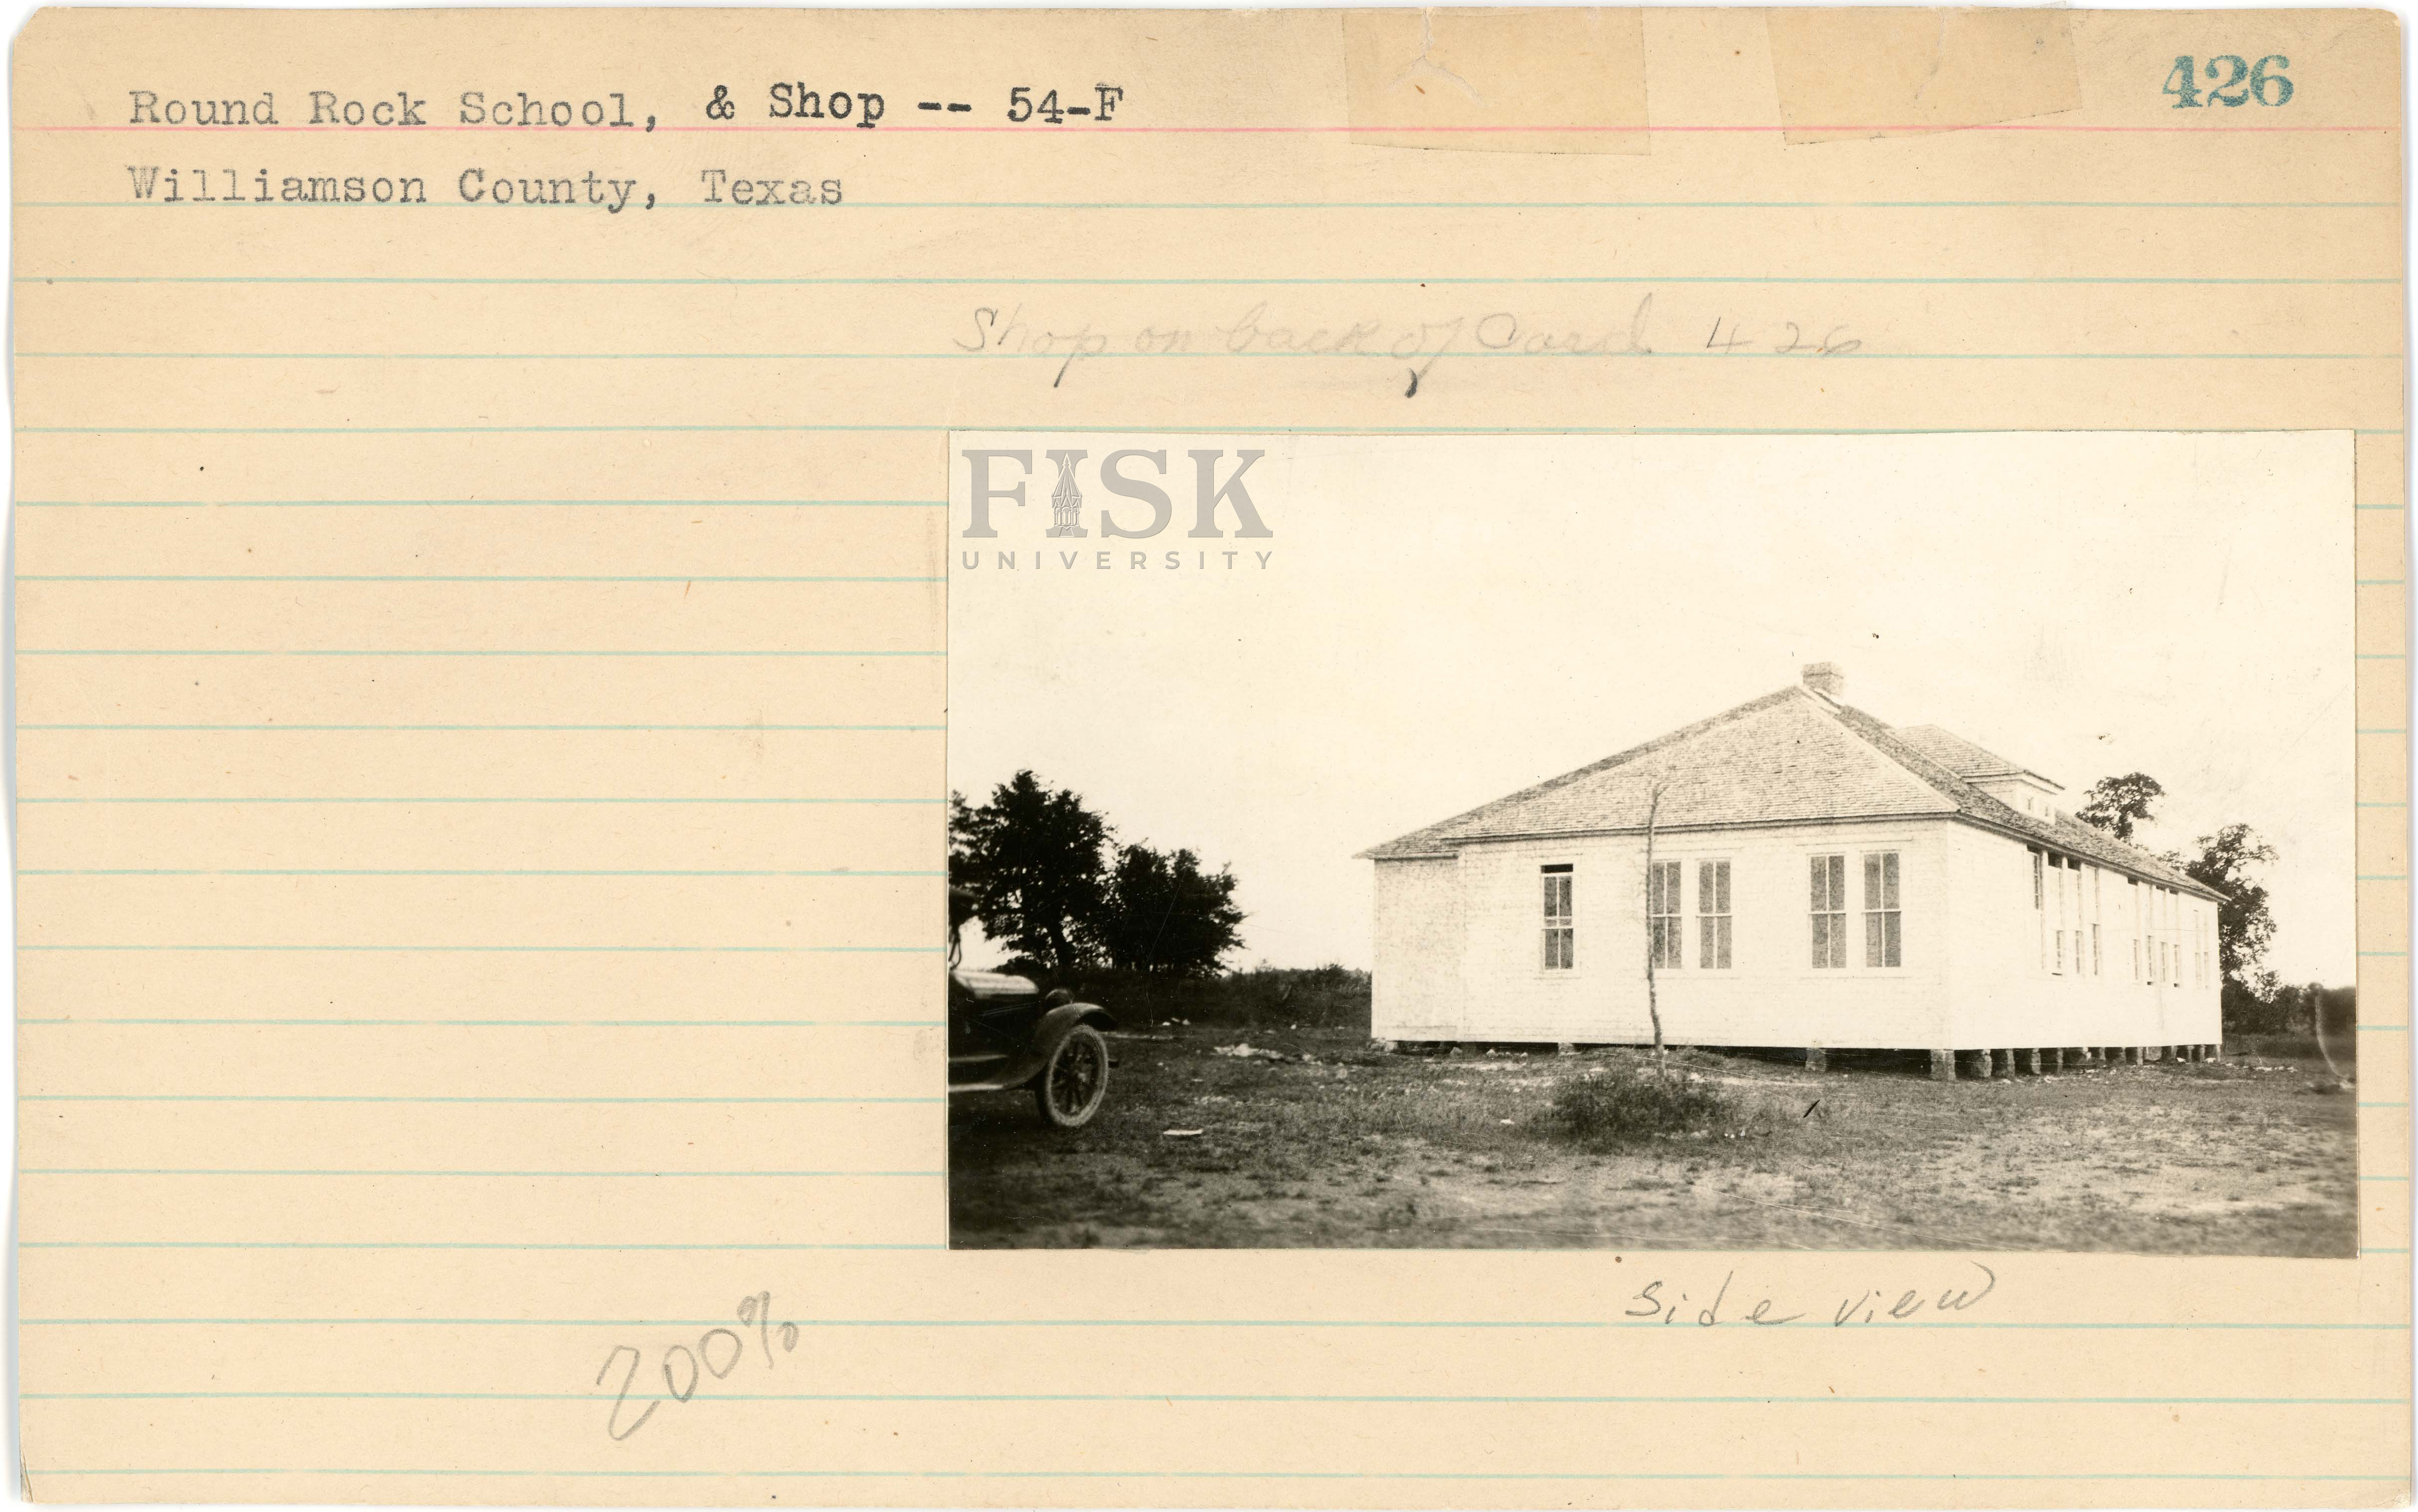 Round Rock School, & Shop -- 54-F
426
Williamson County, Texas
Shop on back of Card 426
FISK
UNIVERSITY
Side view
200%